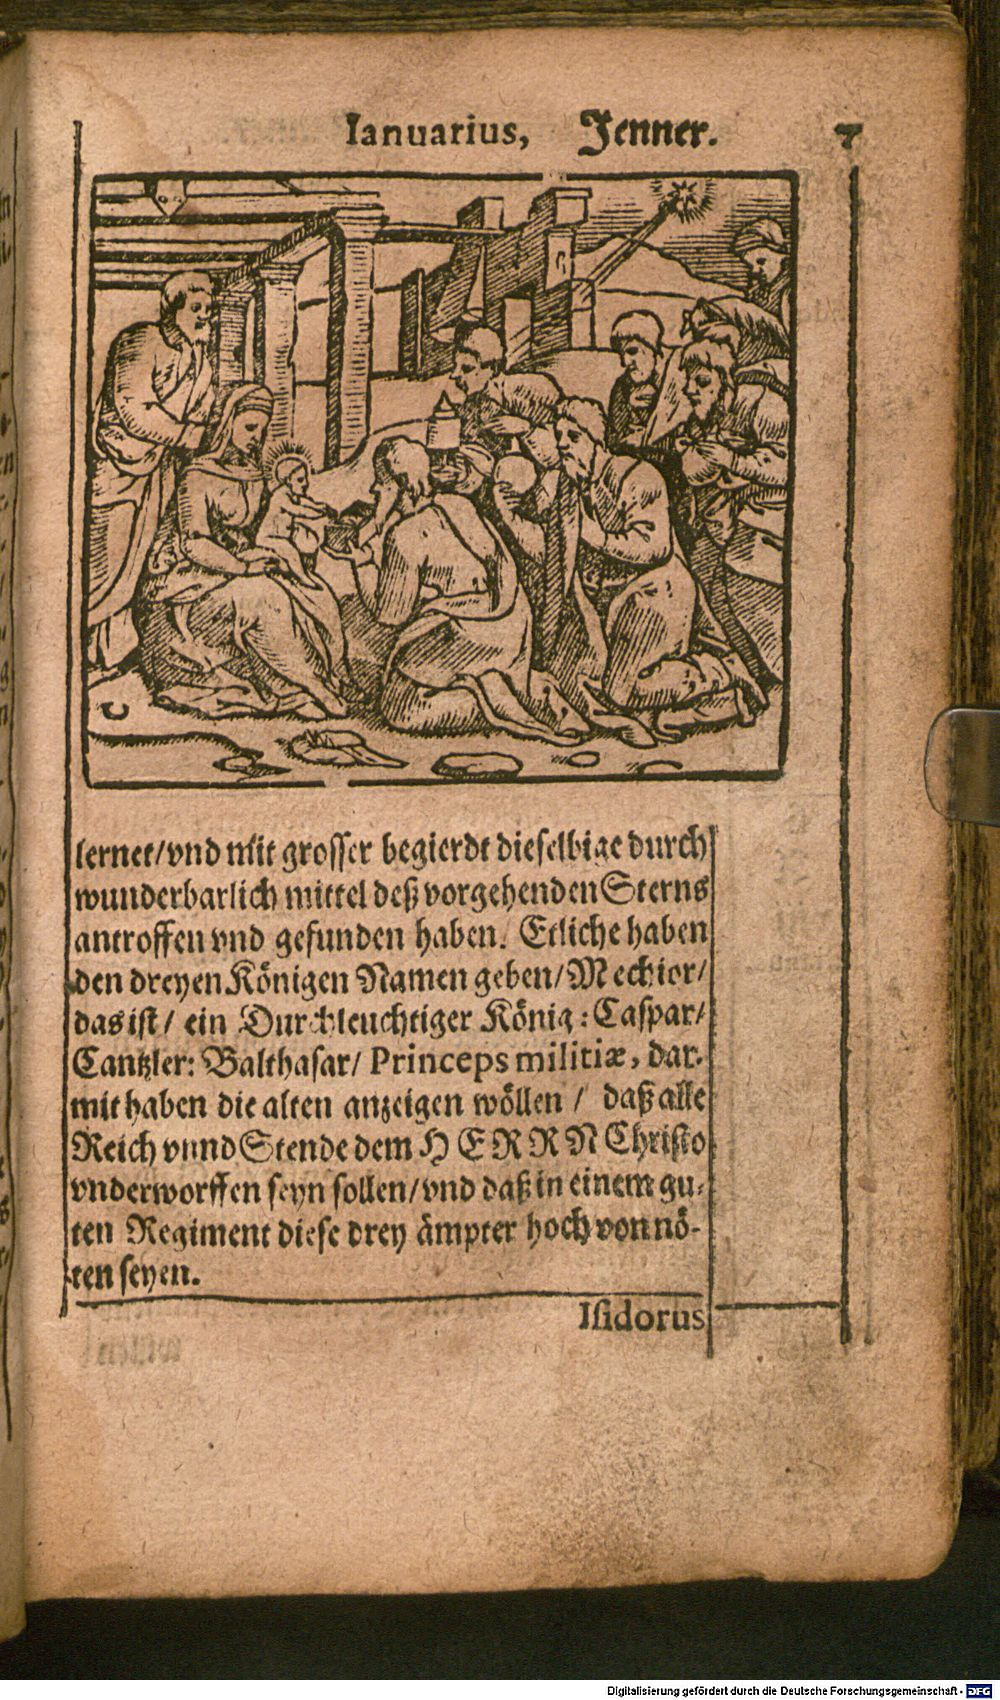 Ianuarius, Jenner. 7
lernet/vnd mit grosser begierdt dieselbige durch
wunderbarlich mittel deß vorgehenden Sterns
antroffen vnd gefunden haben. Etliche haben
den dreyen Königen Namen geben/ Mechior/
das ist/ ein Durchleuchtiger König: Caspar/
Cantzler: Balthasar/ Princeps militiæ, dar-
mit haben die alten anzeigen wöllen / daß alle
Reich vnnd Stende dem HERRN Christo
vnderworffen seyn sollen/vnd daß in einem gu-
ten Regiment diese drey ämpter hoch von nö-
ten seyen.
Isidorus
Digitalisierung gefördert durch die Deutsche Forschungsgemeinschaft - DFG